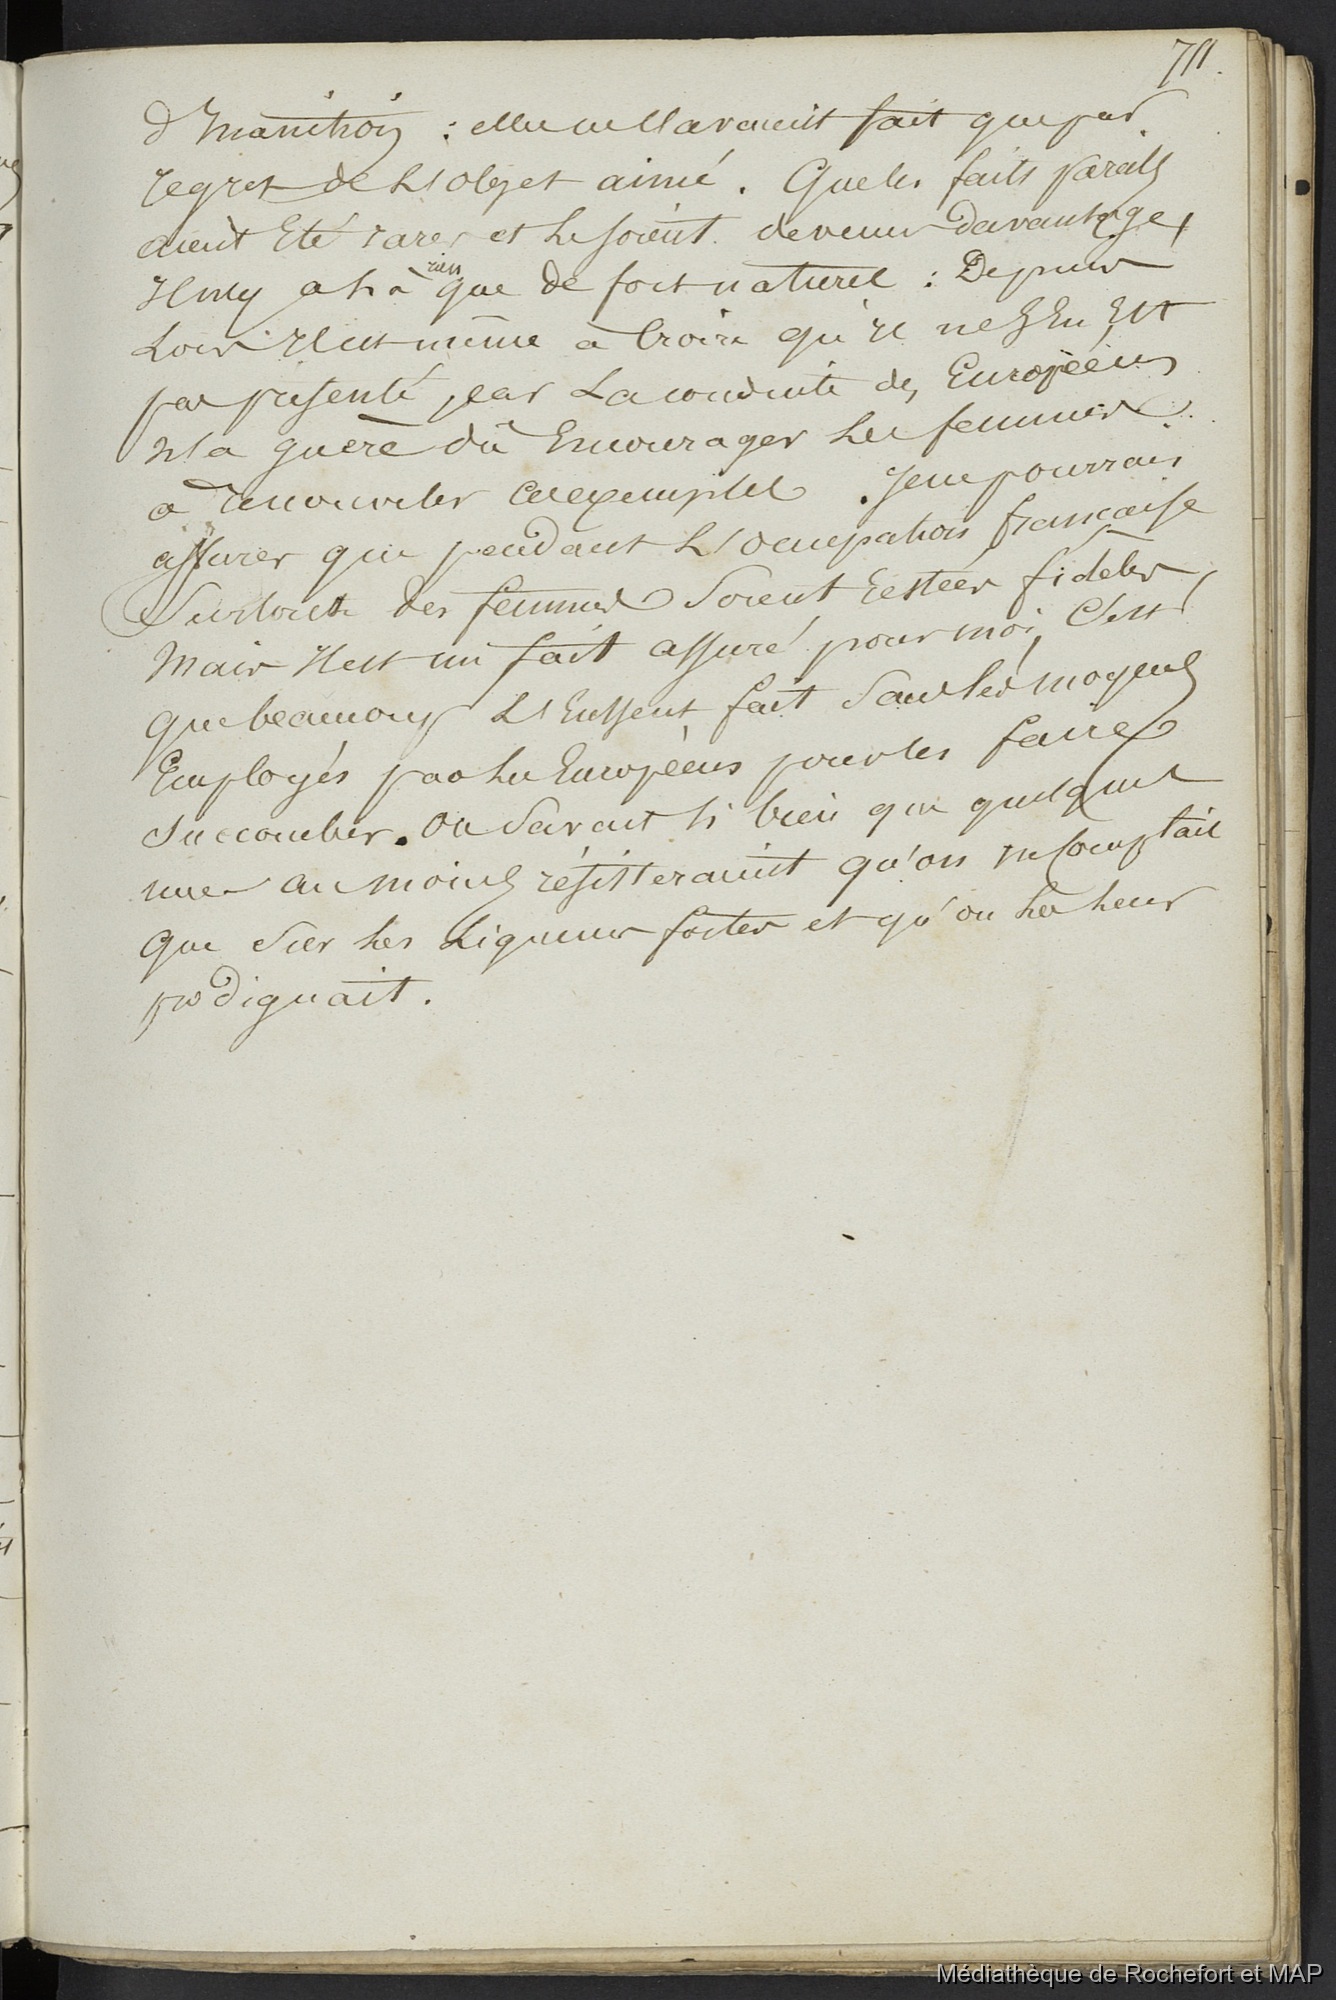 711.
d'inanition : elles ne l'avaient fait que par
regret de l'objet aimé. Que les faits pareils
aient été rares et le soient devenus davantage,
Il n'y a là rien que de fort naturel : Depuis
Lors il est même à croire qu'il ne s'en est
pas présenté, car la conduite des Européens
n'a guère dû Encourager les femmes
a renouveler cet exemple. Je ne pourrais
assurer que pendant l'occupation française
des femmes soient restées fidèles,
Mais il est un fait assuré pour moi, c'est
que beaucoup l'eussent fait sans les moyens
Employés par les Européens pour les faire
succomber. On savait si bien que quelques
unes au moins résisteraient qu'on ne comptait
que sur les Liqueurs fortes et qu'on les leur
prodiguait.
Médiathèque de Rochefort et MAP